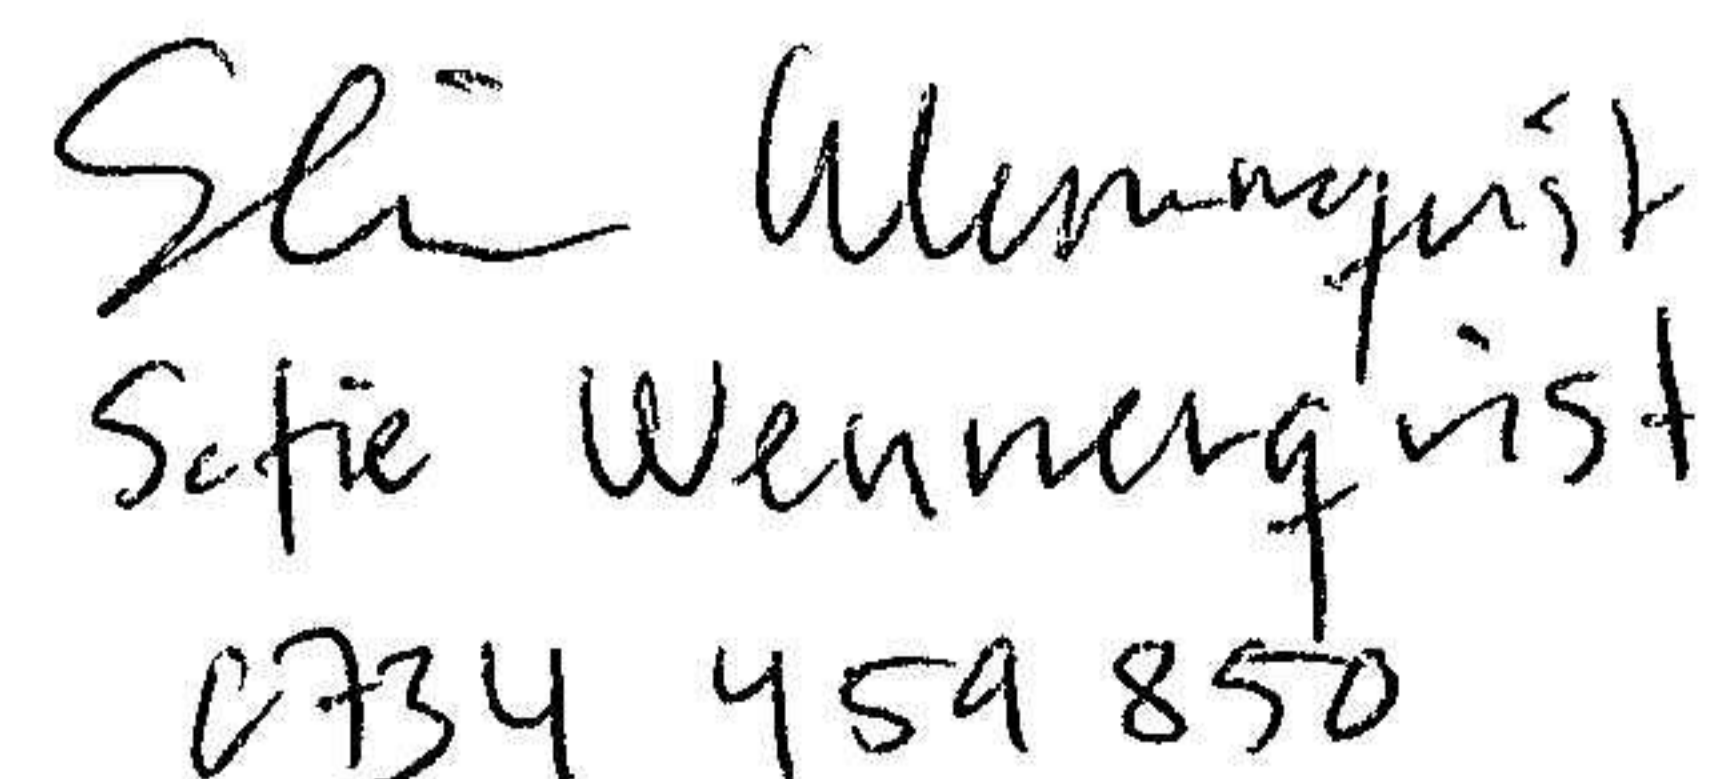 Sofie Wennerqvist
Sofie Wennerqvist
0734 459 850